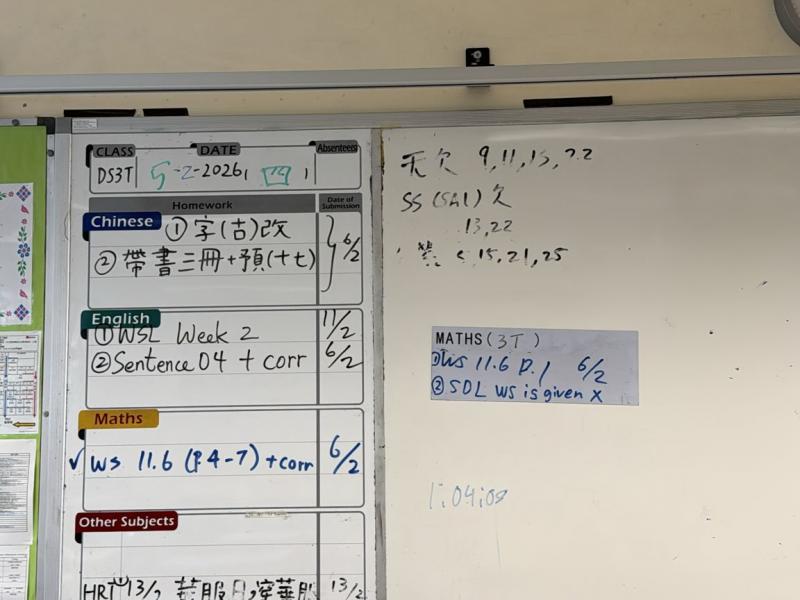 CLASS DATE Absentees
DS3T 5-2-2026, 四
Homework Date of Submission
Chinese ①字(古)改 6/2
②帶書三冊+預(十七)
English 11/2
①WSL Week 2
②Sentence 04 + corr 6/2
Maths
✓ WS 11.6 (P.4-7) + corr 6/2
Other Subjects
13/2 華服日,穿華服 13/2
欠 9,11,15,22
SS (SA1) 欠
13,22
15,21,25
MATHS(3T)
①WS 11.6 P.1 6/2
②SDL WS is given X
1:04:09